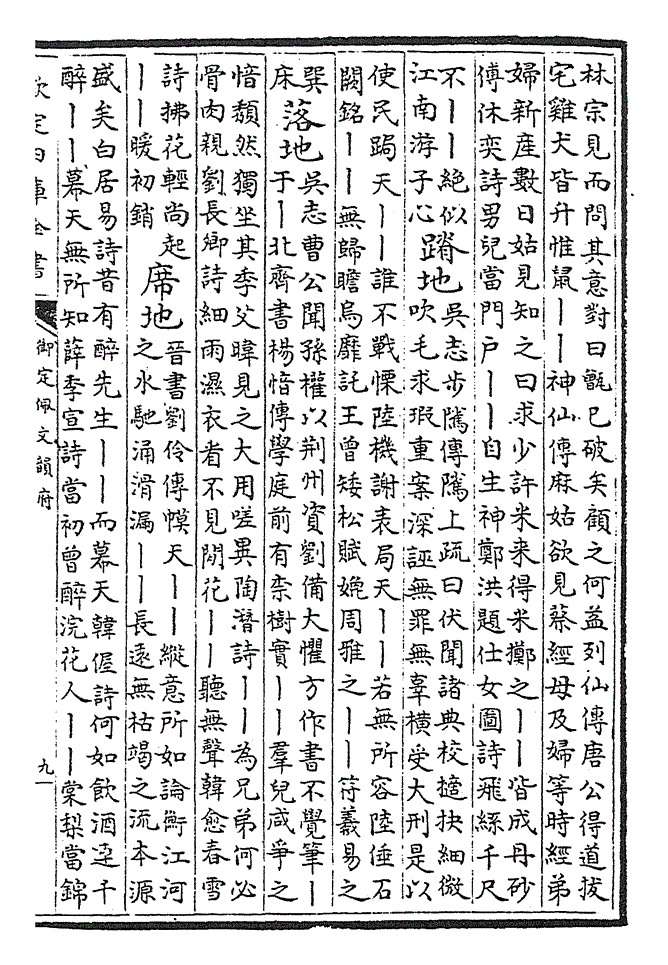 林宗見而問其意對曰甑已破矣顧之何益列仙傳唐公得道拔
宅雞犬皆升惟鼠丨丨神仙傳麻姑欲見蔡經母及婦等時經弟
婦新產數日姑見知之曰求少許米來得米擲之丨丨皆成丹砂
傅休奕詩男兒當門户丨丨自生神鄭洪題仕女圖詩飛絲千尺
不丨丨絶似
江南游子心
蹐地
吳志步隲傳隲上疏曰伏聞諸典校擿抉細微
吹毛求瑕重案深誣無罪無辜横受大刑是以
使民跼天丨丨誰不戰慄陸機謝表局天丨丨若無所容陸倕石
闕銘丨丨無歸瞻烏靡託王曾矮松賦娩周雅之丨丨符羲易之
巽
床
落地
吳志曹公聞孫權以荆州資劉備大懼方作書不覺筆丨
于丨北齊書楊愔傳學庭前有柰樹實丨丨羣兒咸爭之
愔頽然獨坐其季父暐見之大用嗟異陶潛詩丨丨為兄弟何必
骨肉親劉長卿詩細雨濕衣看不見閒花丨丨聽無聲韓愈春雪
詩拂花輕尚起
丨丨暖初銷
席地
晉書劉伶傳幙天丨丨縱意所如論衡江河
之水馳涌滑漏丨丨長逺無枯竭之流本源
盛矣白居易詩昔有醉先生丨丨而幕天韓偓詩何如飲酒連千
醉丨丨幕天無所知薛季宣詩當初曾醉浣花人丨丨棠梨當錦
欽定四庫全書
御定佩文韻府
九